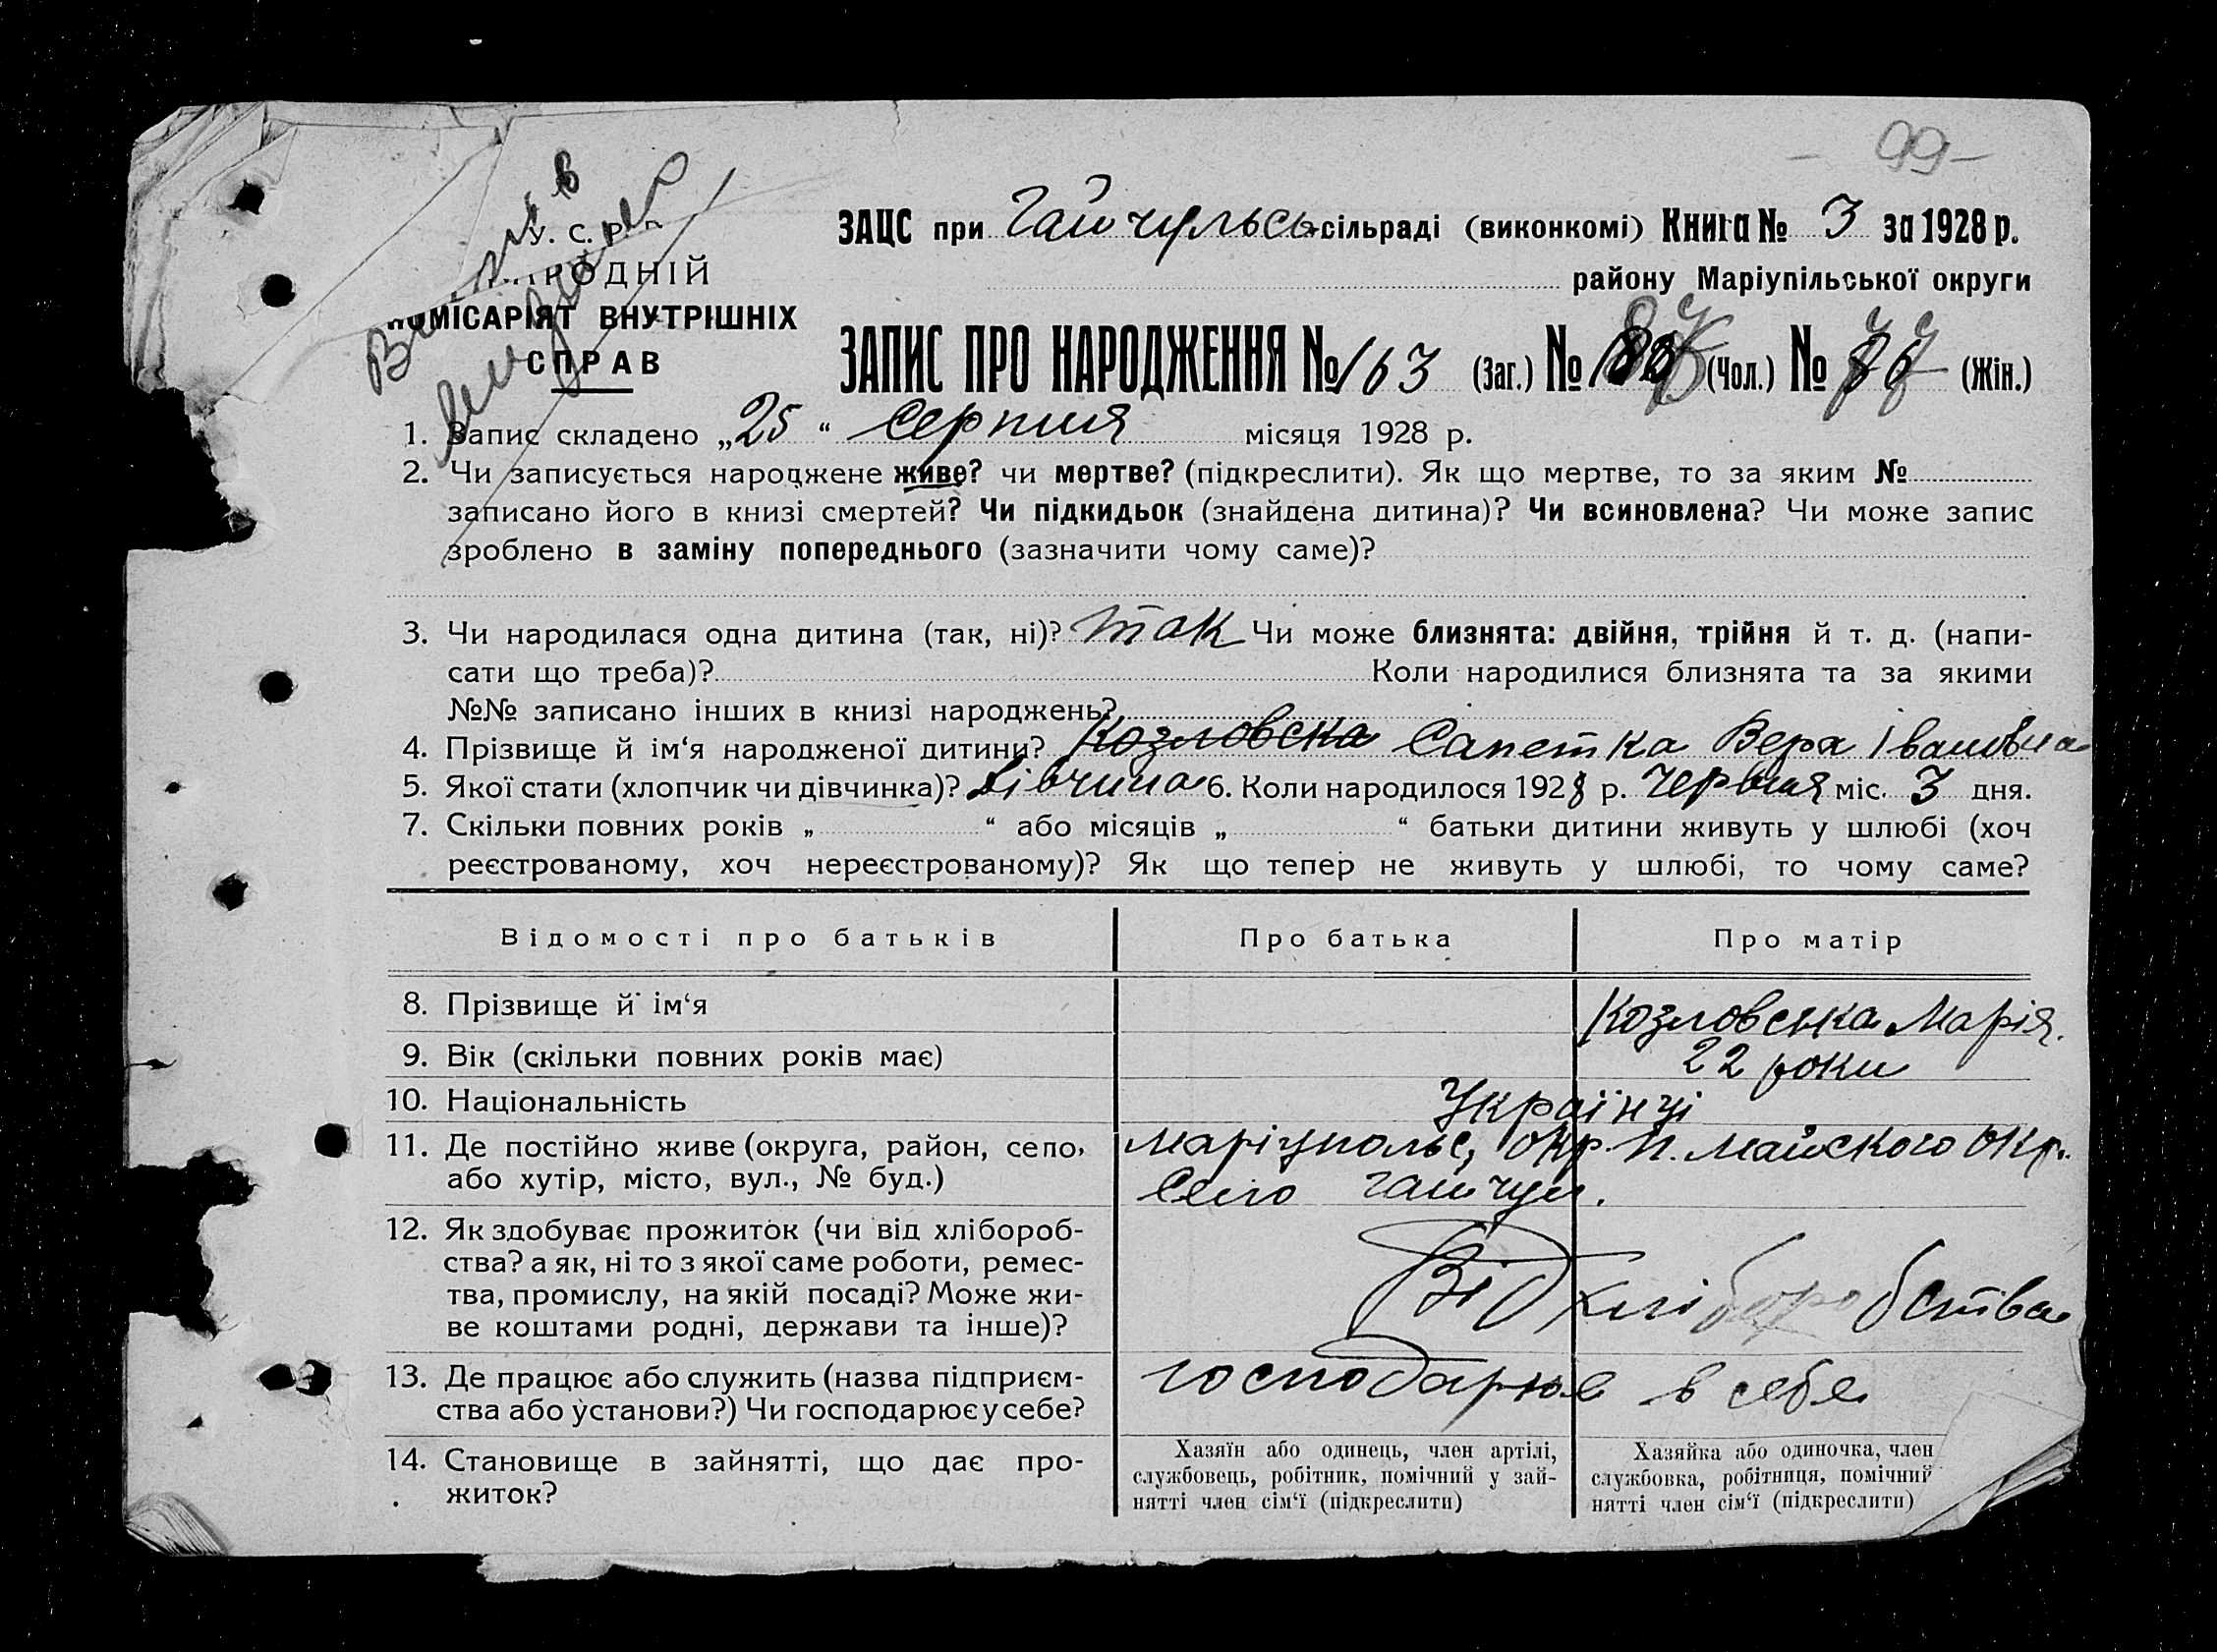 - 99 -
У. С. Р. Р.
НАРОДНІЙ
КОМІСАРІЯТ ВНУТРІШНІХ
СПРАВ
ЗАЦС при Гайчульсь сільраді (виконкомі) Книга № 3 за 1928 р.
району Маріупільської округи
ЗАПИС ПРО НАРОДЖЕННЯ № 163 (Заг.) № (Чол.) № 77 (Жін.)
1. Запис складено „25“ Серпня місяця 1928 р.
2. Чи записується народжене живе? чи мертве? (підкреслити). Як що мертве, то за яким №
записано його в книзі смертей? Чи підкидьок (знайдена дитина)? Чи всиновлена? Чи може запис
зроблено в заміну попереднього (зазначити чому саме)?
3. Чи народилася одна дитина (так, ні)? так Чи може близнята: двійня, трійня й т. д. (напи-
сати що треба)? Коли народилися близнята та за якими
№№ записано інших в книзі народжень?
4. Прізвище й ім‘я народженої дитини? Козловска Сапетка Вера Івановна
5. Якої стати (хлопчик чи дівчинка)? Дівчина 6. Коли народилося 1928 р. Червня міс. 3 дня.
7. Скільки повних років „ “ або місяців „ “ батьки дитини живуть у шлюбі (хоч
реєстрованому, хоч нереєстрованому)? Як що тепер не живуть у шлюбі, то чому саме?
Відомості про батьків Про батька Про матір
8. Прізвище й ім‘я Козловська Марія.
9. Вік (скільки повних років має) 22 роки
10. Національність Українці
11. Де постійно живе (округа, район, село, Маріупольс, окр. П. Майского окр.
або хутір, місто, вул., № буд.) Село Гайчул.
12. Як здобуває прожиток (чи від хлібороб-
ства? а як, ні то з якої саме роботи, ремес-
тва, промислу, на якій посаді? Може жи- Від хліборобства
ве коштами родні, держави та інше)?
13. Де працює або служить (назва підприєм- господарює в себе
ства або установи?) Чи господарює у себе?
14. Становище в зайнятті, що дає про-
житок?
Хазяїн або одинець, член артілі,
службовець, робітник, помічний у зай-
нятті член сім‘ї (підкреслити)
Хазяйка або одиночка, член
службовка, робітниця, помічний
нятті член сім‘ї (підкреслити)